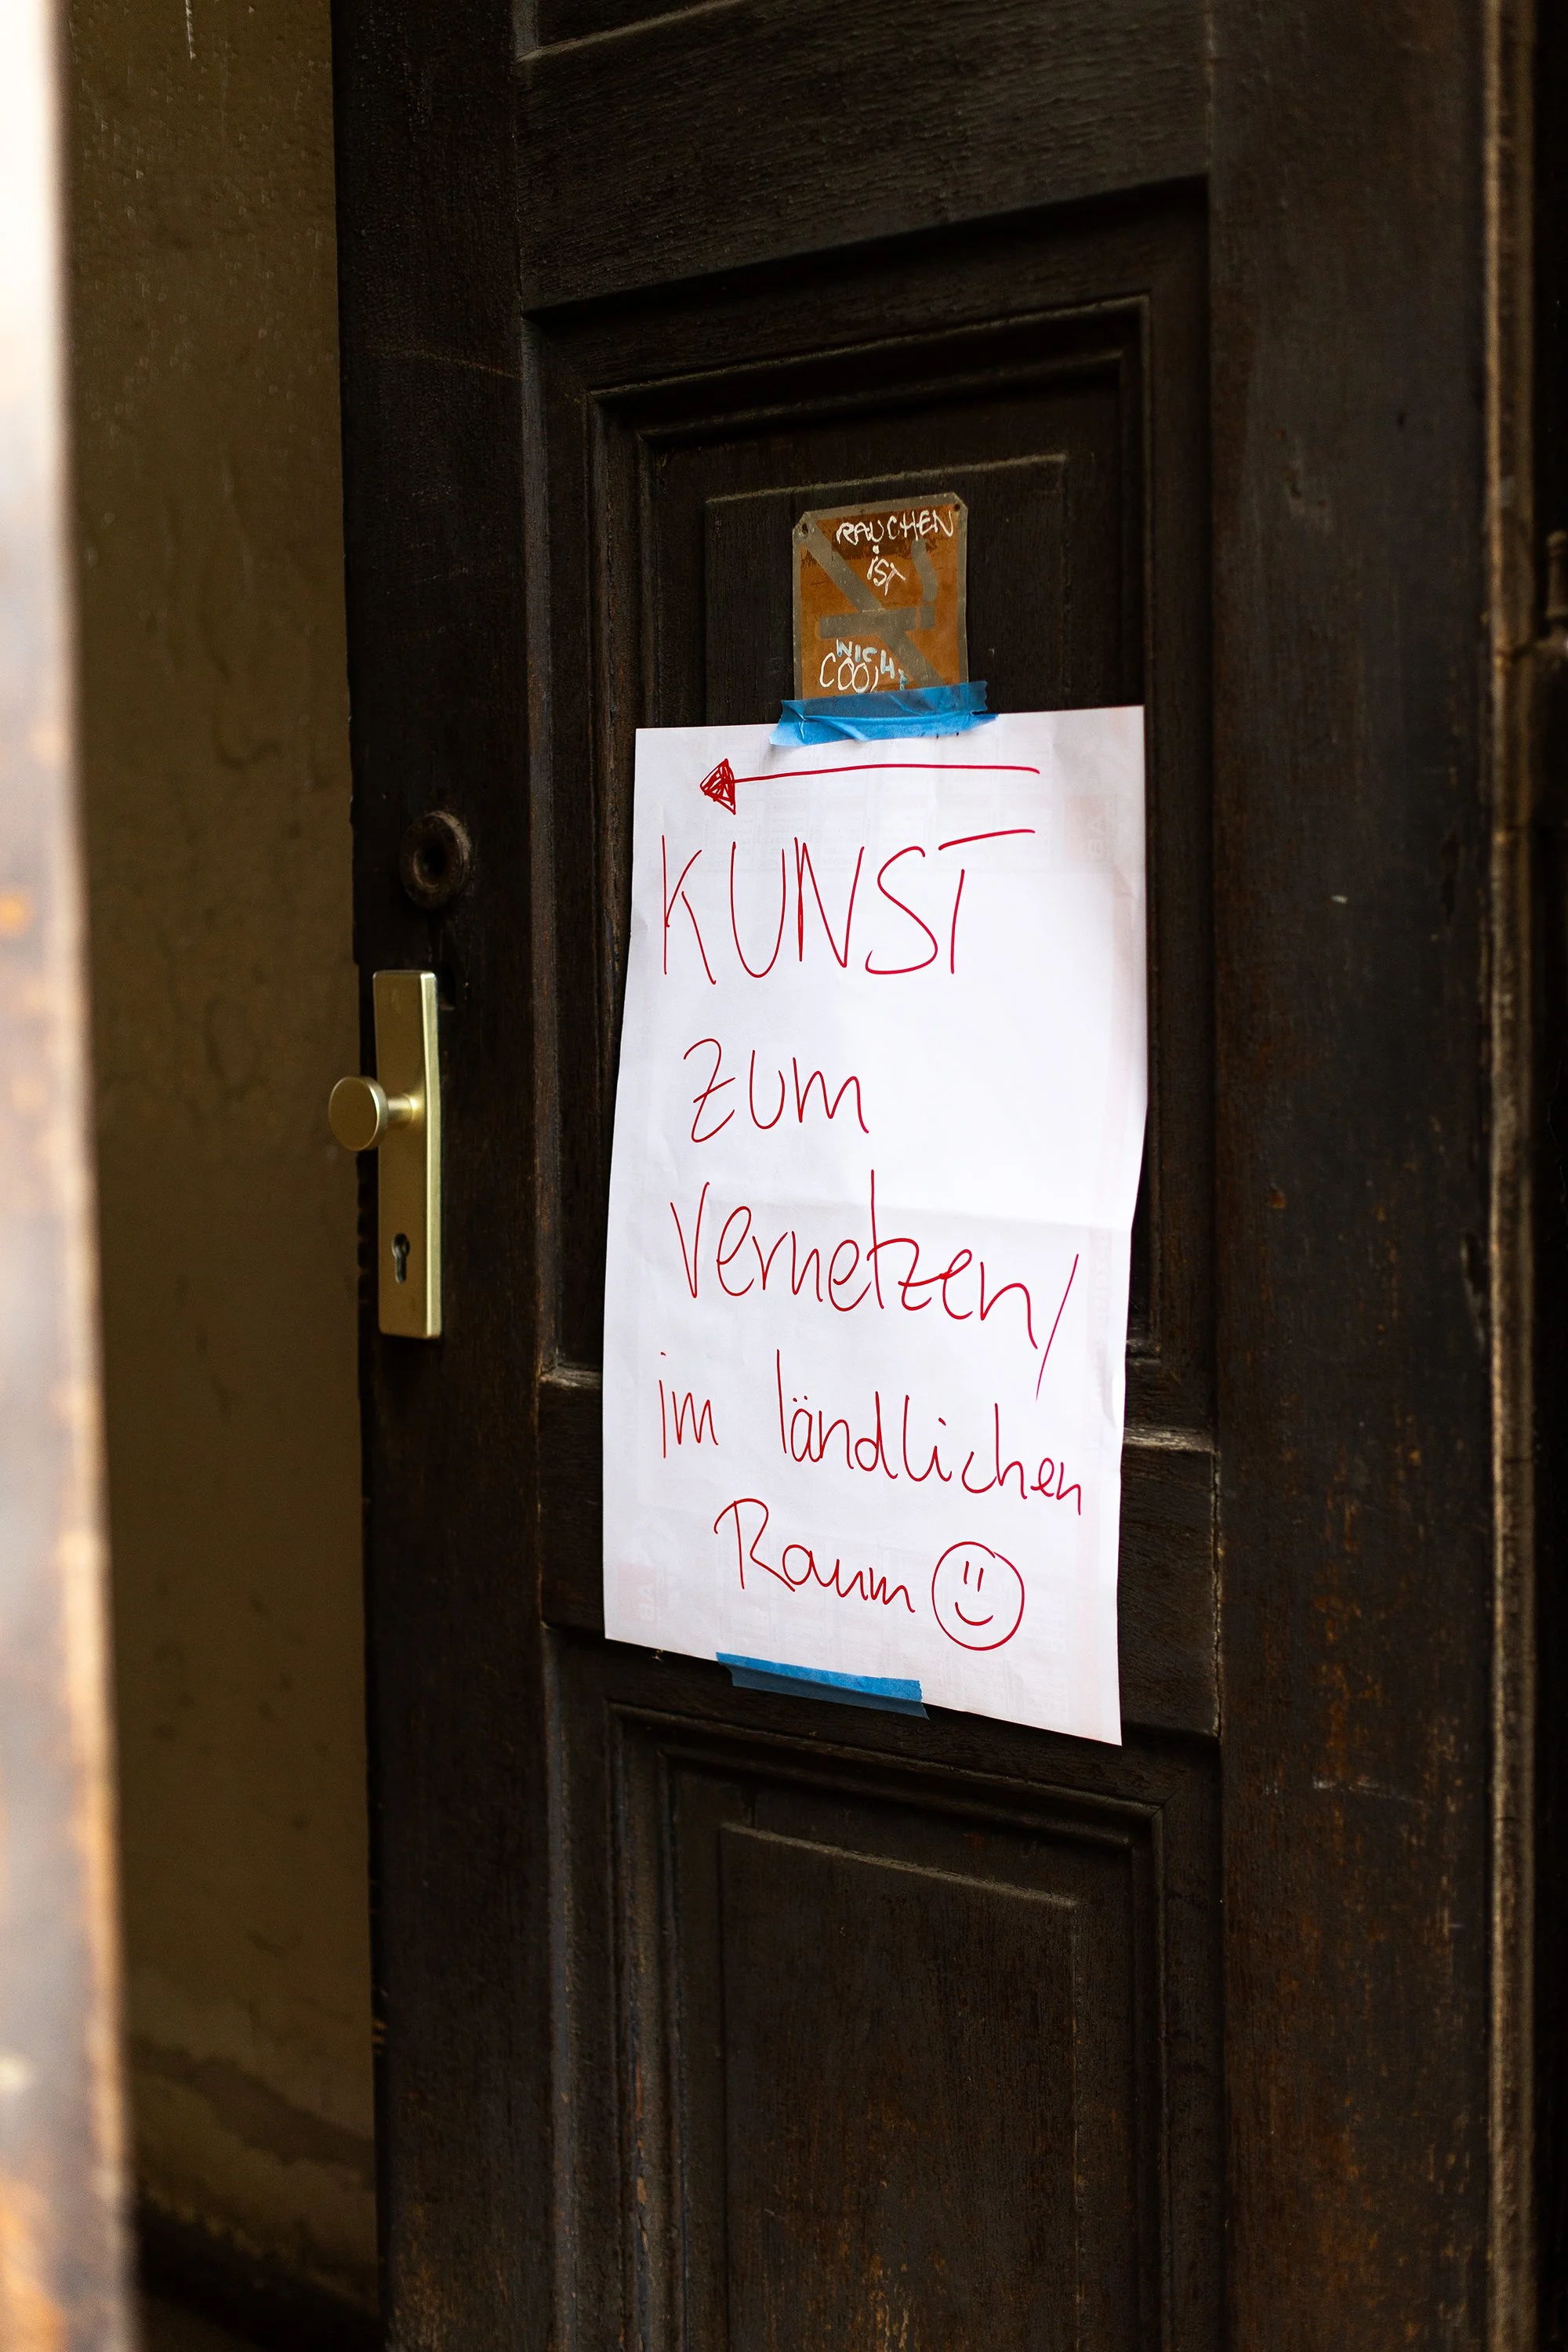 RAUCHEN
IST
NICH
COOL
KUNST
zum
vernetzen/
im ländlichen
Raum